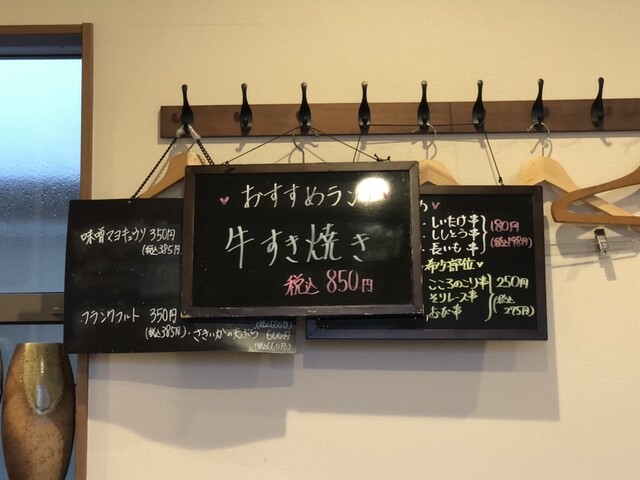 味噌マヨキュウリ 350円
(税込385円)
フランクフルト 350円
(税込385円)・さきいかの天ぷら 600円
(税込660円)
(税込660円)
♥ おすすめラン
牛すき焼き
税込 850円
め
・しいたけ串
・ししとう串
・長いも 串
180円
(税込198円)
希少部位♥
こころのこり串
そりレース串
おび串
250円
(税込
275円)